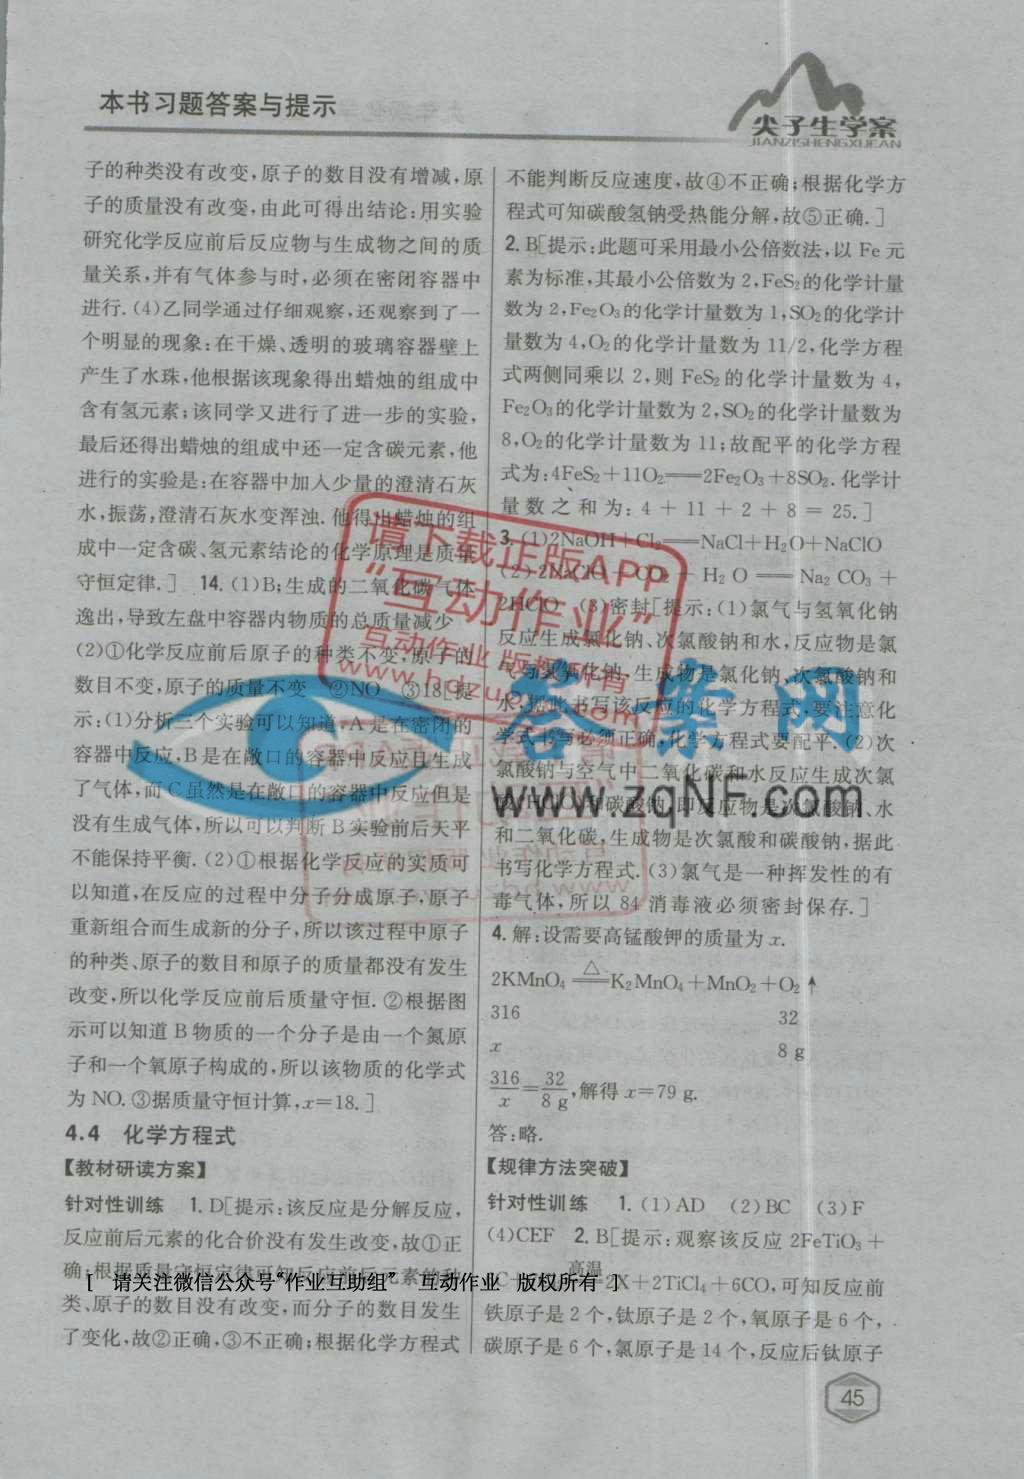 本书习题答案与提示
尖子生学案
JIANZISHENGXUEAN
子的种类没有改变,原子的数目没有增减,原
子的质量没有改变,由此可得出结论:用实验
研究化学反应前后反应物与生成物之间的质
量关系,并有气体参与时,必须在密闭容器中
进行.(4)乙同学通过仔细观察,还观察到了一
个明显的现象:在干燥、透明的玻璃容器壁上
产生了水珠,他根据该现象得出蜡烛的组成中
含有氢元素;该同学又进行了进一步的实验,
最后还得出蜡烛的组成中还一定含碳元素,他
进行的实验是:在容器中加入少量的澄清石灰
水,振荡,澄清石灰水变浑浊.他得出蜡烛的组
成中一定含碳、氢元素结论的化学原理是质量
守恒定律.] 14.(1)B;生成的二氧化碳气体
逸出,导致左盘中容器内物质的总质量减少
(2)①化学反应前后原子的种类不变,原子的
数目不变,原子的质量不变 ②NO ③18[提
示:(1)分析三个实验可以知道,A是在密闭的
容器中反应,B是在敞口的容器中反应且生成
了气体,而C虽然是在敞口的容器中反应但是
没有生成气体,所以可以判断B实验前后天平
不能保持平衡.(2)①根据化学反应的实质可
以知道,在反应的过程中分子分成原子,原子
重新组合而生成新的分子,所以该过程中原子
的种类、原子的数目和原子的质量都没有发生
改变,所以化学反应前后质量守恒.②根据图
示可以知道B物质的一个分子是由一个氮原
子和一个氧原子构成的,所以该物质的化学式
为NO.③据质量守恒计算,x=18.]
4.4 化学方程式
【教材研读方案】
针对性训练 1.D[提示:该反应是分解反应,
反应前后元素的化合价没有发生改变,故①正
确;根据质量守恒定律可知反应前后元素的种
类、原子的数目没有改变,而分子的数目发生
了变化,故②正确,③不正确;根据化学方程式
不能判断反应速度,故④不正确;根据化学方
程式可知碳酸氢钠受热能分解,故⑤正确.]
2.B[提示:此题可采用最小公倍数法,以Fe元
素为标准,其最小公倍数为2,FeS₂的化学计量
数为2,Fe₂O₃的化学计量数为1,SO₂的化学计
量数为4,O₂的化学计量数为11/2,化学方程
式两侧同乘以2,则FeS₂的化学计量数为4,
Fe₂O₃的化学计量数为2,SO₂的化学计量数为
8,O₂的化学计量数为11;故配平的化学方程
式为:4FeS₂+11O₂══2Fe₂O₃+8SO₂.化学计
量数之和为:4+11+2+8=25.]
3.(1)2NaOH+Cl₂══NaCl+H₂O+NaClO
(2)2NaClO+CO₂+H₂O══Na₂CO₃+
2HClO (3)密封[提示:(1)氯气与氢氧化钠
反应生成氯化钠、次氯酸钠和水,反应物是氯
气与氢氧化钠,生成物是氯化钠、次氯酸钠和
水,据此书写该反应的化学方程式,要注意化
学式书写必须正确,化学方程式要配平.(2)次
氯酸钠与空气中二氧化碳和水反应生成次氯
酸HClO与碳酸钠,即反应物是次氯酸钠、水
和二氧化碳,生成物是次氯酸和碳酸钠,据此
书写化学方程式.(3)氯气是一种挥发性的有
毒气体,所以84消毒液必须密封保存.]
4.解:设需要高锰酸钾的质量为x.
2KMnO₄ ══△ K₂MnO₄+MnO₂+O₂↑
316 32
x 8 g
316/x=32/8 g,解得x=79 g.
答:略.
【规律方法突破】
针对性训练 1.(1)AD (2)BC (3)F
(4)CEF 2.B[提示:观察该反应2FeTiO₃+
高温
2X+2TiCl₄+6CO,可知反应前
铁原子是2个,钛原子是2个,氧原子是6个,
碳原子是6个,氯原子是14个,反应后钛原子
[ 请关注微信公众号“作业互助组” 互动作业 版权所有 ]
45
请下载正版APP
“互动作业”
互动作业 版权所有
www.hdzuoye.com
答案网
www.zqNF.com